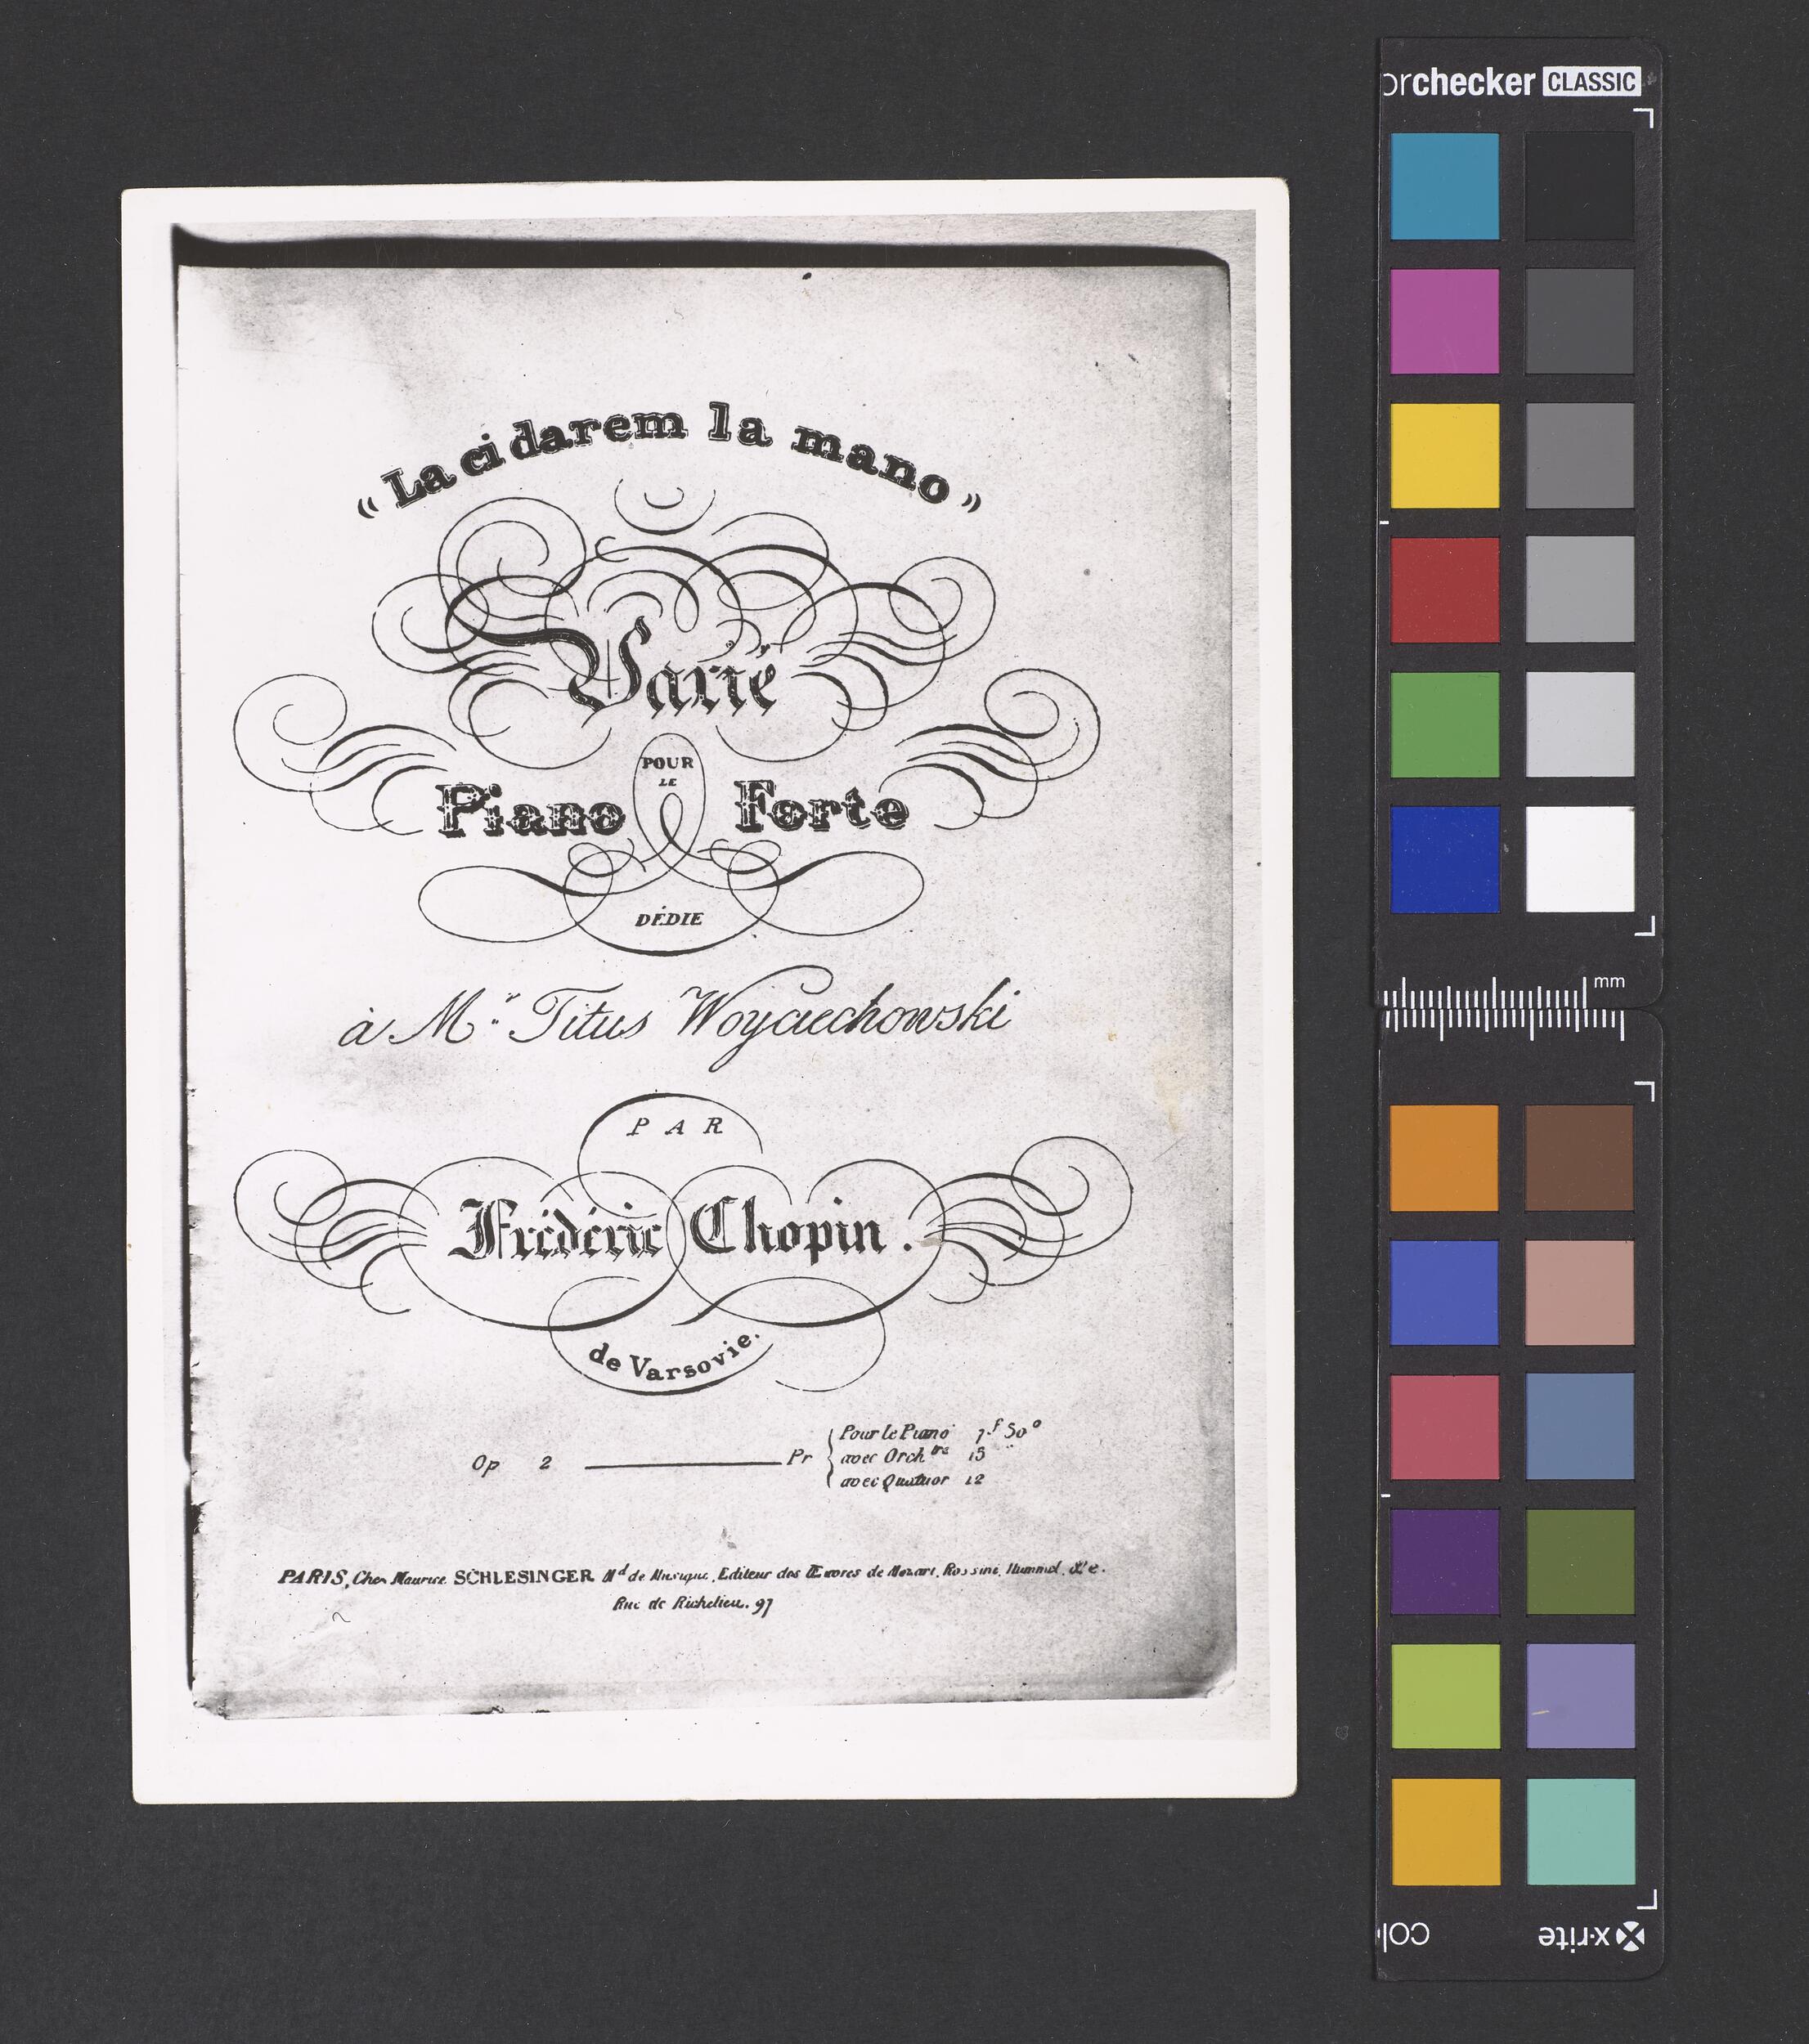 « La ci darem la mano »
Varié
POUR
LE
Piano Forte
DÉDIÉ
à Mr. Titus Woyciechowski
PAR
Frédéric Chopin.
de Varsovie.
Op 2 Pr
Pour le Piano 7f 50c
avec Orchtre 15
avec Quatuor 12
PARIS, Chez Maurice SCHLESINGER Md de Musique, Editeur des Œuvres de Mozart, Rossini, Hummel, &c.
Rue de Richelieu. 97
orchecker CLASSIC
mm
x-rite
col